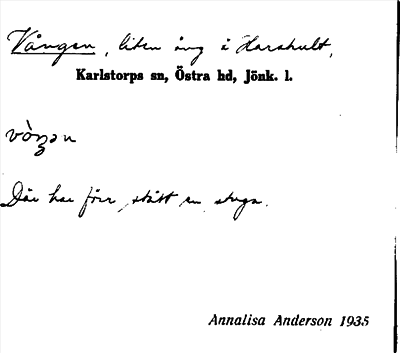 Vången, liten äng i Harshult,
Karlstorps sn, Östra hd, Jönk. l.
vòŋən
Där har förr stått en stuga.
Annalisa Anderson 1935